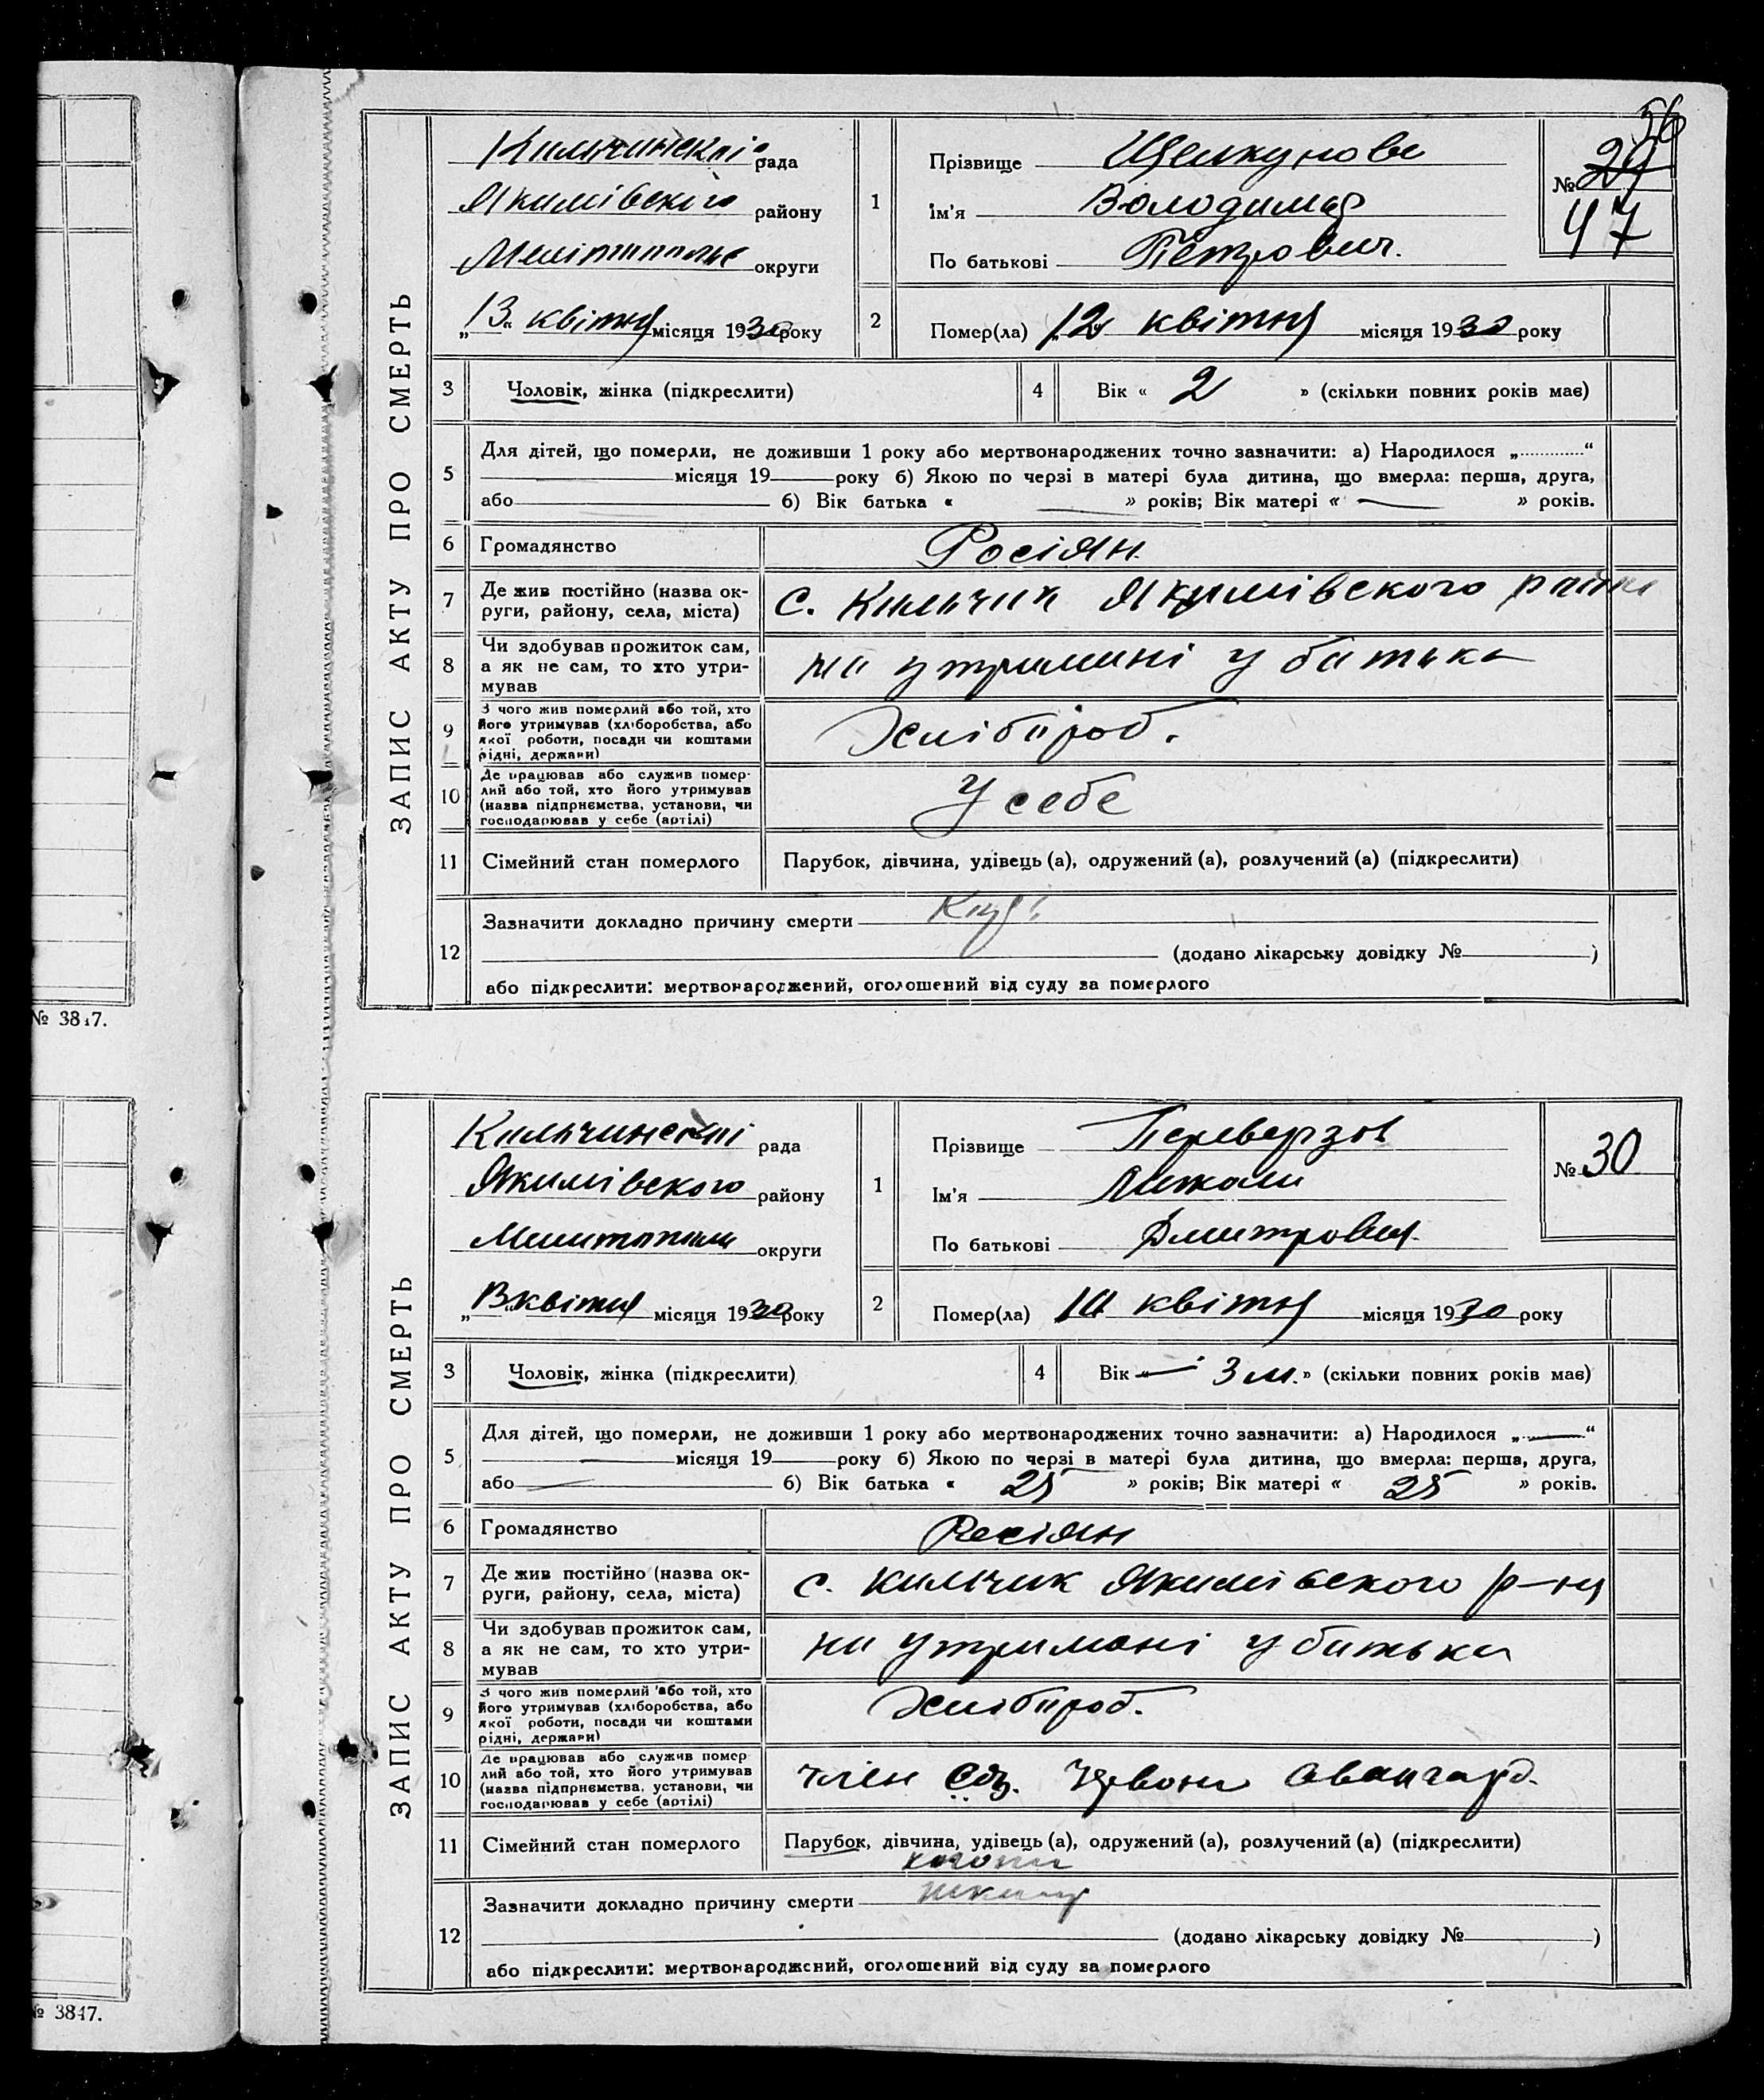 56
ЗАПИС АКТУ ПРО СМЕРТЬ
рада
Якимівского району
округи
„13“ квітня місяця 1930 року
1
Прізвище
Ім'я Володимер
По батькові Петрович.
№ 29
47
2
Помер(ла) 12 квітня місяця 1930 року
3
Чоловік, жінка (підкреслити)
4
Вік « 2 » (скільки повних років має)
5
Для дітей, що померли, не доживши 1 року або мертвонароджених точно зазначити: а) Народилося „ “
місяця 19 року б) Якою по черзі в матері була дитина, що вмерла: перша, друга,
або б) Вік батька « » років; Вік матері « » років.
6
Громадянство Росіян
7
Де жив постійно (назва ок-
руги, району, села, міста)
с. Кильчик Якимівского райну
8
Чи здобував прожиток сам,
а як не сам, то хто утри-
мував
на утримані у батька
9
З чого жив померлий або той, хто
його утримував (хліборобства, або
якої роботи, посади чи коштами
рідні, держави)
Хлібороб.
10
Де працював або служив помер-
лий або той, хто його утримував
(назва підприємства, установи, чи
господарював у себе (артілі)
У себе
11
Сімейний стан померлого
Парубок, дівчина, удівець (а), одружений (а), розлучений (а) (підкреслити)
12
Зазначити докладно причину смерти
(додано лікарську довідку № )
або підкреслити: мертвонароджений, оголошений від суду за померлого
№ 3847.
ЗАПИС АКТУ ПРО СМЕРТЬ
рада
Якимівского району
округи
„13 квітня місяця 1930 року
1
Прізвище Переверзов
Ім'я
По батькові Дмитрович
№ 30
2
Помер(ла) квітня місяця 1930 року
3
Чоловік, жінка (підкреслити)
4
Вік « — 3 м. » (скільки повних років має)
5
Для дітей, що померли, не доживши 1 року або мертвонароджених точно зазначити: а) Народилося „ “
місяця 19 року б) Якою по черзі в матері була дитина, що вмерла: перша, друга,
або б) Вік батька « 25 » років; Вік матері « 25 » років.
6
Громадянство Росіян
7
Де жив постійно (назва ок-
руги, району, села, міста)
с. Кильчик Якимівского р-ну
8
Чи здобував прожиток сам,
а як не сам, то хто утри-
мував
на утримані у батька
9
З чого жив померлий або той, хто
його утримував (хліборобства, або
якої роботи, посади чи коштами
рідні, держави)
Хлібороб.
10
Де працював або служив помер
лий або той, хто його утримував
(назва підприємства, установи, чи
господарював у себе (артілі)
член Авангард.
11
Сімейний стан померлого
Парубок, дівчина, удівець (а), одружений (а), розлучений (а) (підкреслити)
12
Зазначити докладно причину смерти
(додано лікарську довідку № )
або підкреслити: мертвонароджений, оголошений від суду за померлого
№ 3847.